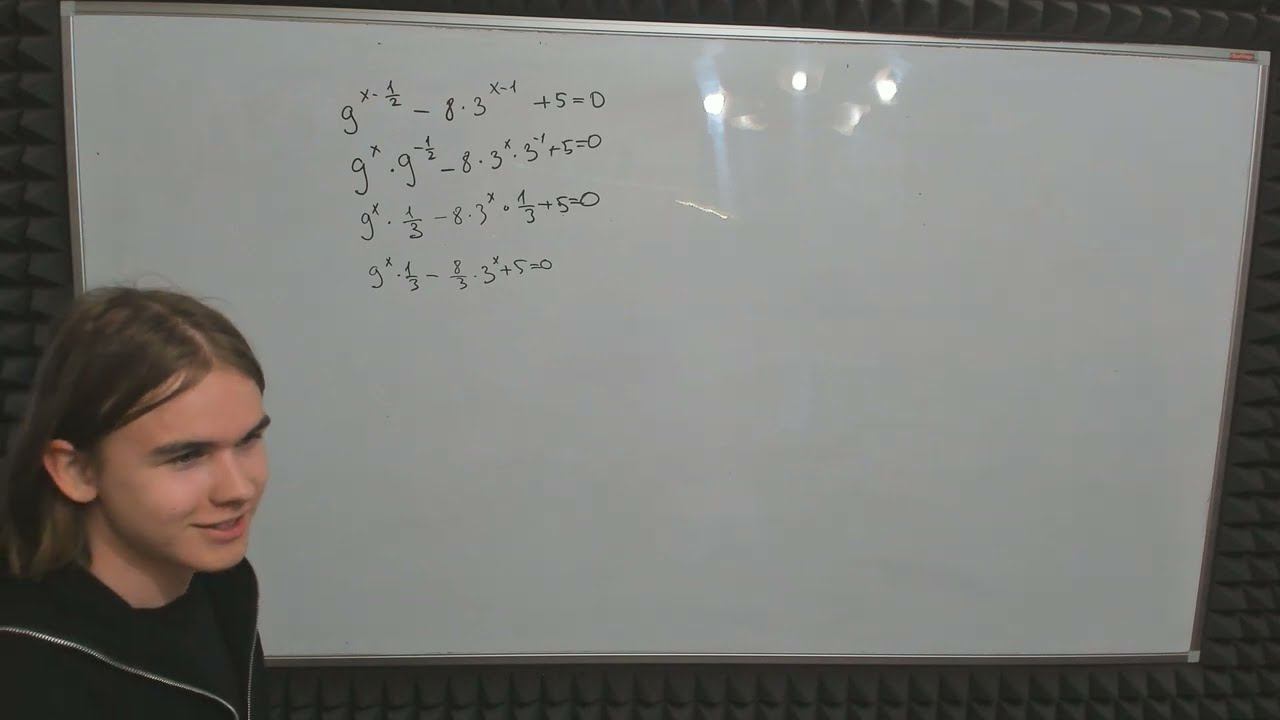 9^{x-\frac{1}{2}} - 8 \cdot 3^{x-1} + 5 = 0
9^x \cdot 9^{-\frac{1}{2}} - 8 \cdot 3^x \cdot 3^{-1} + 5 = 0
9^x \cdot \frac{1}{3} - 8 \cdot 3^x \cdot \frac{1}{3} + 5 = 0
9^x \cdot \frac{1}{3} - \frac{8}{3} \cdot 3^x + 5 = 0